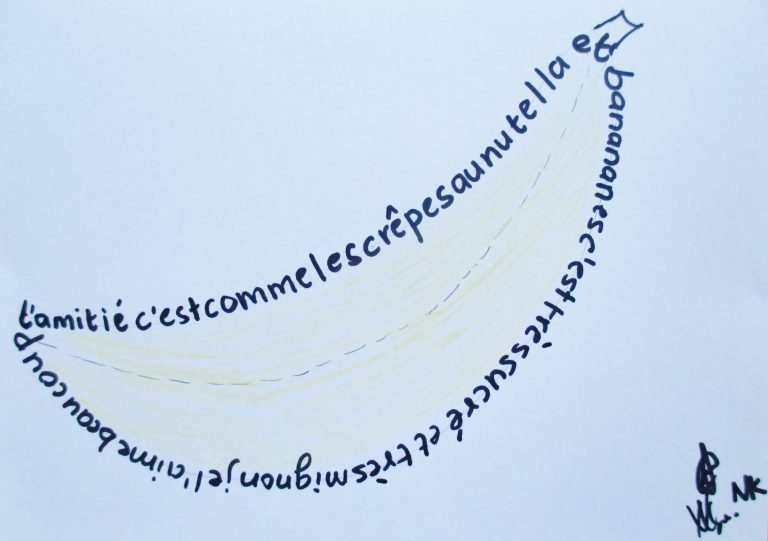 l'amitié c'est comme les crêpes au nutella et
banananes c'est très sucré et très mignon je l'aime beaucoup
NK